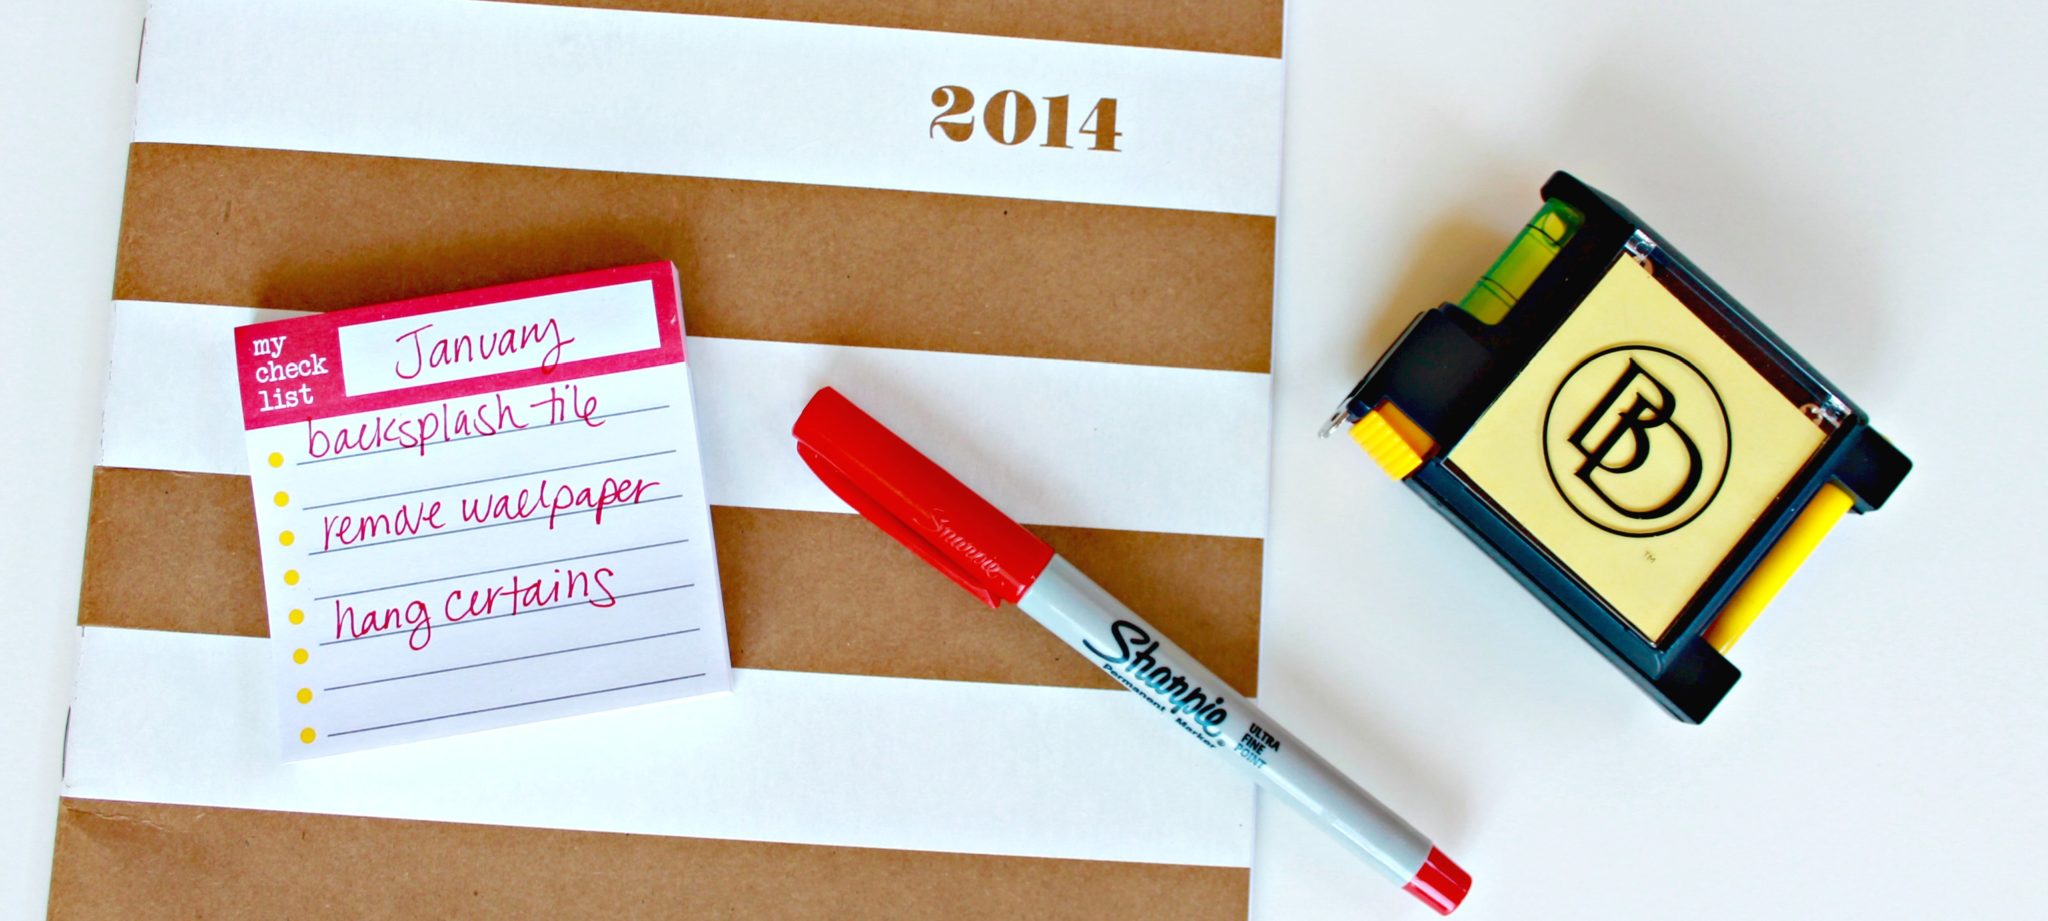 2014
my
check
list
January
backsplash tile
remove wallpaper
hang certains
Sharpie
Sharpie®
Permanent Marker
ULTRA
FINE
POINT
BD
TM